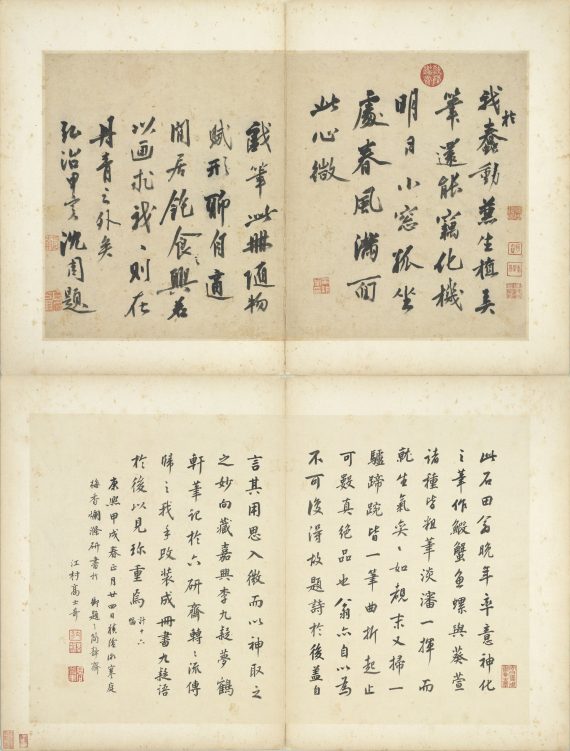 我於蠢動兼生植弄
筆還能竊化機
明月小窗孤坐
處春風滿面
此心微
戲筆此冊隨物
賦形聊自適
閒居飽食之興若
以画求我、則在
丹青之外矣
弘治甲寅沈周題
此石田翁晚年率意神化
之筆作鰕蟹魚螺與葵萱
諸種皆粗筆淡瀋一揮而
生氣奕、如又掃一
驢蹄踠皆一筆曲折起止
可數真絕品也翁亦自以為
不可復得故題詩於後蓋自
言其用思入微而以神取之
之妙向藏嘉興李九疑夢鶴
軒筆記於六研齋轉、流傳
歸之我手改裝成冊書九疑語
於後以見珍重焉計十六幅
康熙甲戌春正月廿四日積陰微寒庭
梅香爛滌研書於 御題、簡靜齋
江村高士奇